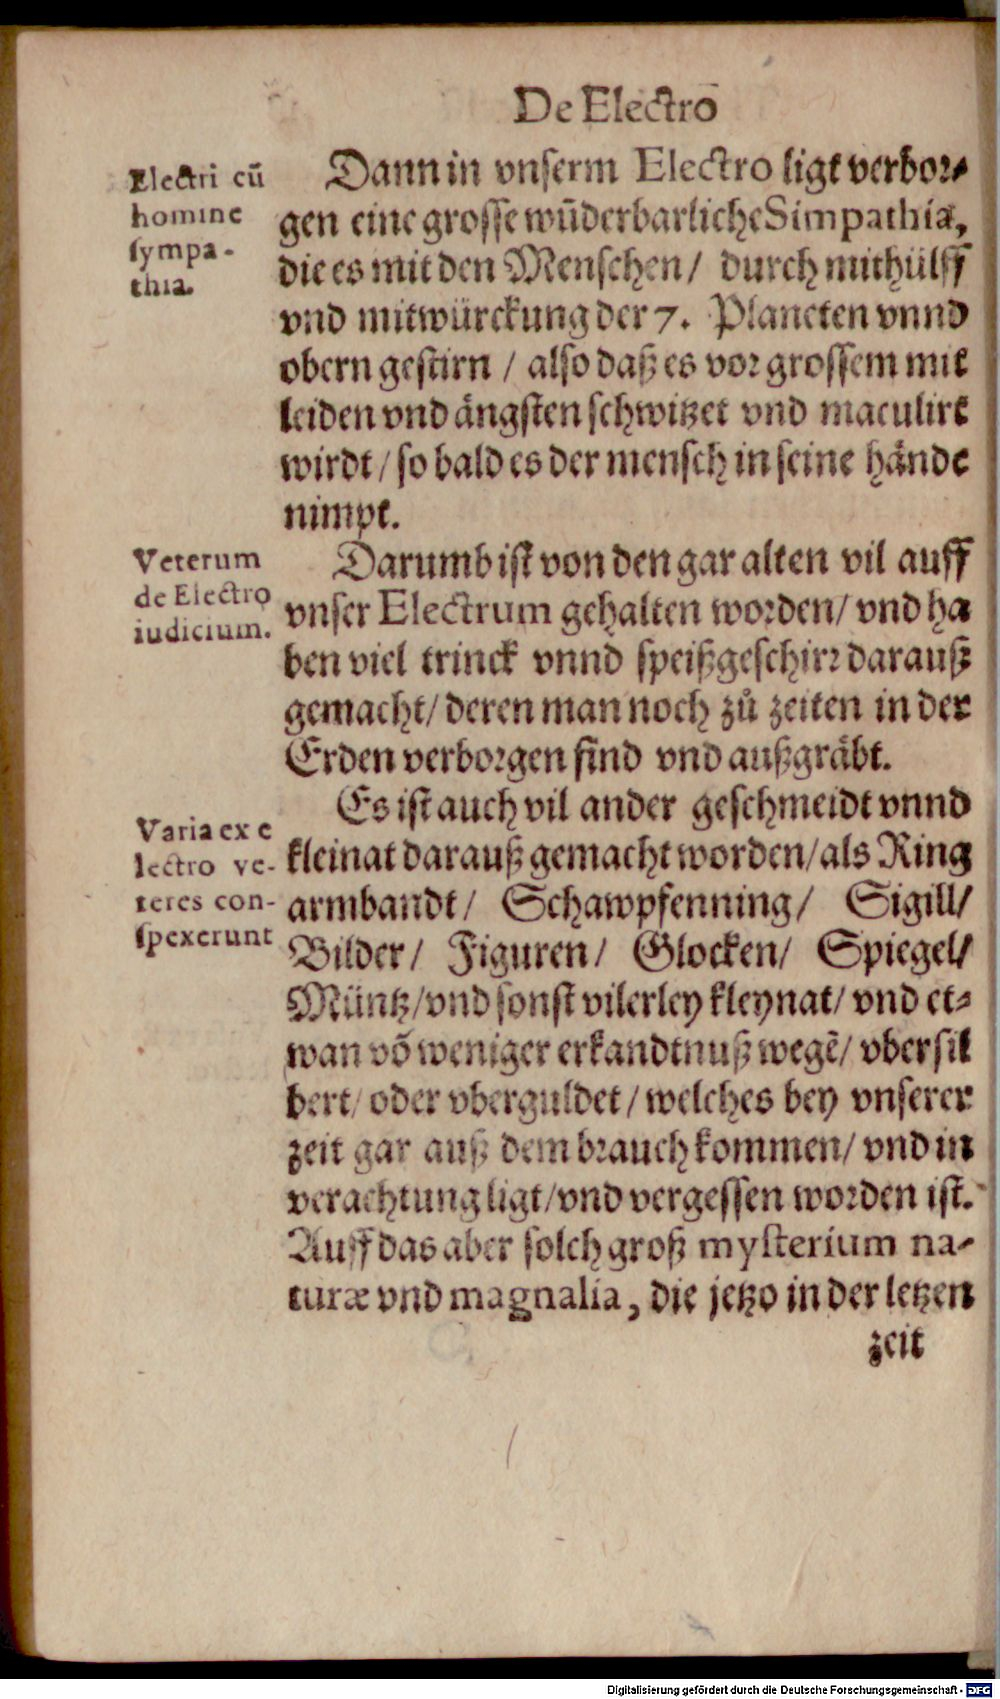 De Electro
Electri cū
homine
sympa-
thia.
Dann in vnserm Electro ligt verbor-
gen eine grosse wūderbarliche Simpathia,
die es mit den Menschen/ durch mithülff
vnd mitwürckung der 7. Planeten vnnd
obern gestirn / also daß es vor grossem mit
leiden vnd ängsten schwitzet vnd maculirt
wirdt / so bald es der mensch in seine hände
nimpt.
Veterum
de Electro
iudicium.
Darumb ist von den gar alten vil auff
vnser Electrum gehalten worden/ vnd ha
ben viel trinck vnnd speißgeschirr darauß
gemacht/ deren man noch zů zeiten in der
Erden verborgen find vnd außgräbt.
Varia ex e
lectro ve-
teres con-
spexerunt
Es ist auch vil ander geschmeidt vnnd
kleinat darauß gemacht worden/ als Ring
armbandt/ Schawpfenning/ Sigill/
Bilder/ Figuren/ Glocken/ Spiegel/
Müntz/ vnd sonst vilerley kleynat/ vnd et-
wan võ weniger erkandtnuß wegē/ vbersil
bert/ oder vberguldet/ welches bey vnserer
zeit gar auß dem brauch kommen/ vnd in
verachtung ligt/ vnd vergessen worden ist.
Auff das aber solch groß mysterium na-
turæ vnd magnalia, die jetzo in der letzen
zeit
Digitalisierung gefördert durch die Deutsche Forschungsgemeinschaft - DFG